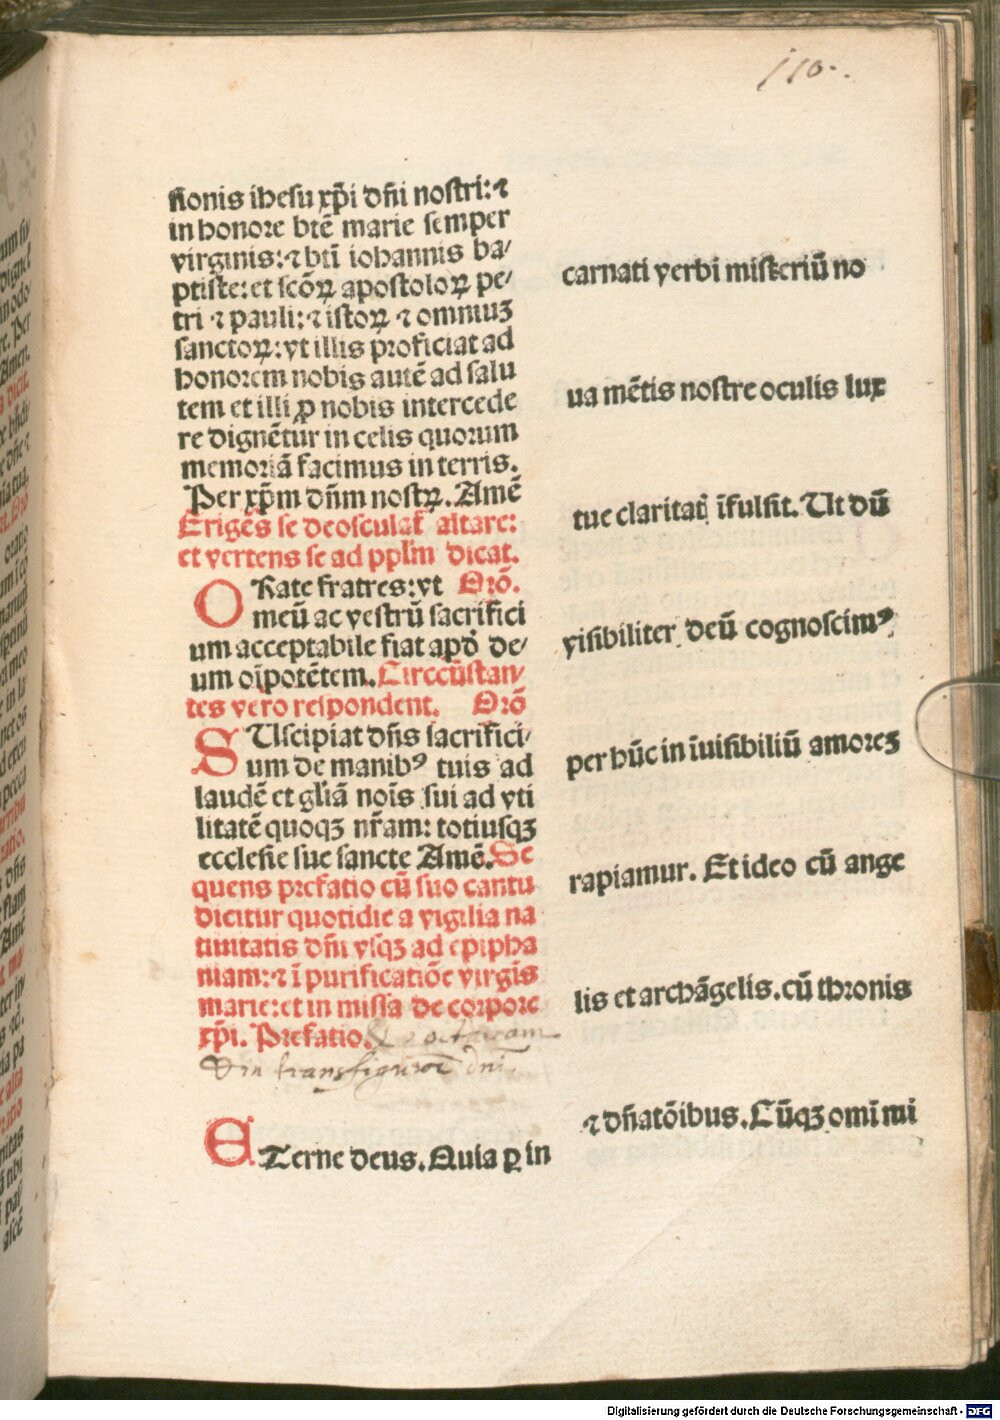 110.
sionis ihesu xp̄i dñi nostri: ⁊
in honore btē marie semper
virginis: ⁊ bti̅ iohannis ba/
ptiste: et scōꝝ apostoloꝝ pe/
tri ⁊ pauli: ⁊ istoꝝ ⁊ omniuꝫ
sanctoꝝ: vt illis proficiat ad
honorem nobis autē ad salu
tem et illi ꝓ nobis intercede
re dignētur in celis quorum
memoriā facimus in terris.
Per xp̄m dñm nostꝝ. Amē
Erigēs se deosculat̄ altare:
et vertens se ad pplm̄ dicat.
ORate fratres: vt Orō.
meū ac vestrū sacrifici
um acceptabile fiat apd̄ de/
um oīpotētem. Circcūstan/
tes vero respondent. Orō
SUscipiat dñs sacrifici/
um de manibꝰ tuis ad
laudē et gl̄iā noīs sui ad vti
litatē quoqꝫ nr̄am: totiusqꝫ
ecclesie sue sancte Amē. Se
quens prefatio cū suo cantu
dicitur quotidie a vigilia na
tiuitatis dñi vsqꝫ ad epipha
niam: ⁊ ī purificatiōe virgīs
marie: et in missa de corpore
xp̄i. Prefatio. & octauam
in transfiguroē dni.
ETerne deus. Quia ꝑ in
carnati verbi misteriū no
ua mētis nostre oculis lux
tue claritatꝭ īfulsit. Ut dū
visibiliter deū cognoscimꝰ
per hūc in īuisibiliū amoreꝫ
rapiamur. Et ideo cū ange
lis et archāgelis. cū thronis
⁊ dñatōibus. Cūqꝫ omī mi
Digitalisierung gefördert durch die Deutsche Forschungsgemeinschaft - DFG